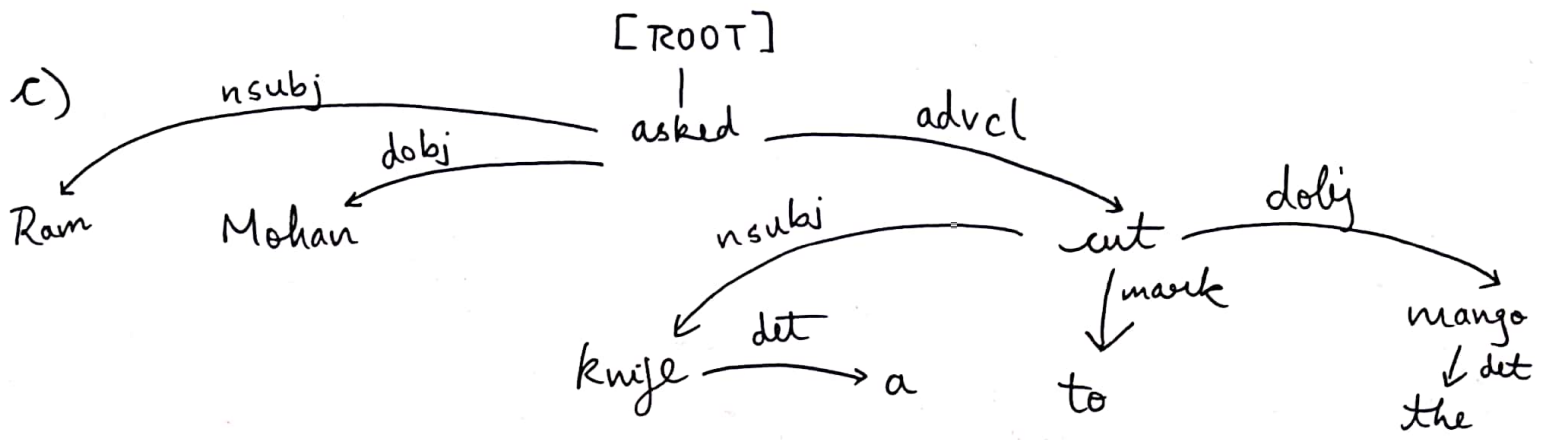 [ROOT]
c)
nsubj
asked
advcl
dobj
Ram
Mohan
nsubj
cut
dobj
mark
mango
det
knife
a
to
det
the